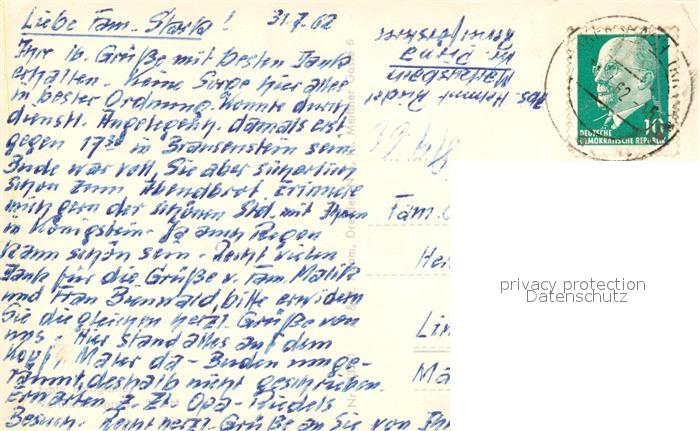 Liebe Fam. Starka! 31.7.62
Ihre lb. Grüße mit besten Dank
erhalten. Keine Sorge hier alles
in bester Ordnung. Konnte durch
dienstl. Angelegenh. damals erst
gegen 17³⁰ in sein
Bude war voll, Sie aber
schon zum Abendbrot. Erinnere
mich gern der schönen Std. mit Ihnen
in Königstein. Ja auch Regen
kann schön sein. Recht vielen
Dank für die Grüße v. Fam. Malik
und Frau bitte erwidern
Sie die gleichen herzl. Grüße von
uns. Hier stand alles auf dem
Kopf. Maler da - Buden umge-
räumt, deshalb nicht geschrieben.
Erwarten z. Zt. Opa-Riedels
Besuch. Recht herzl. Grüße an Sie von Ihr
Abs. Helmut Riedel
Kr. Pirna
Fam.
He
Lim
Ma
DEUTSCHE
DEMOKRATISCHE REPUBLIK
10
privacy protection
Datenschutz